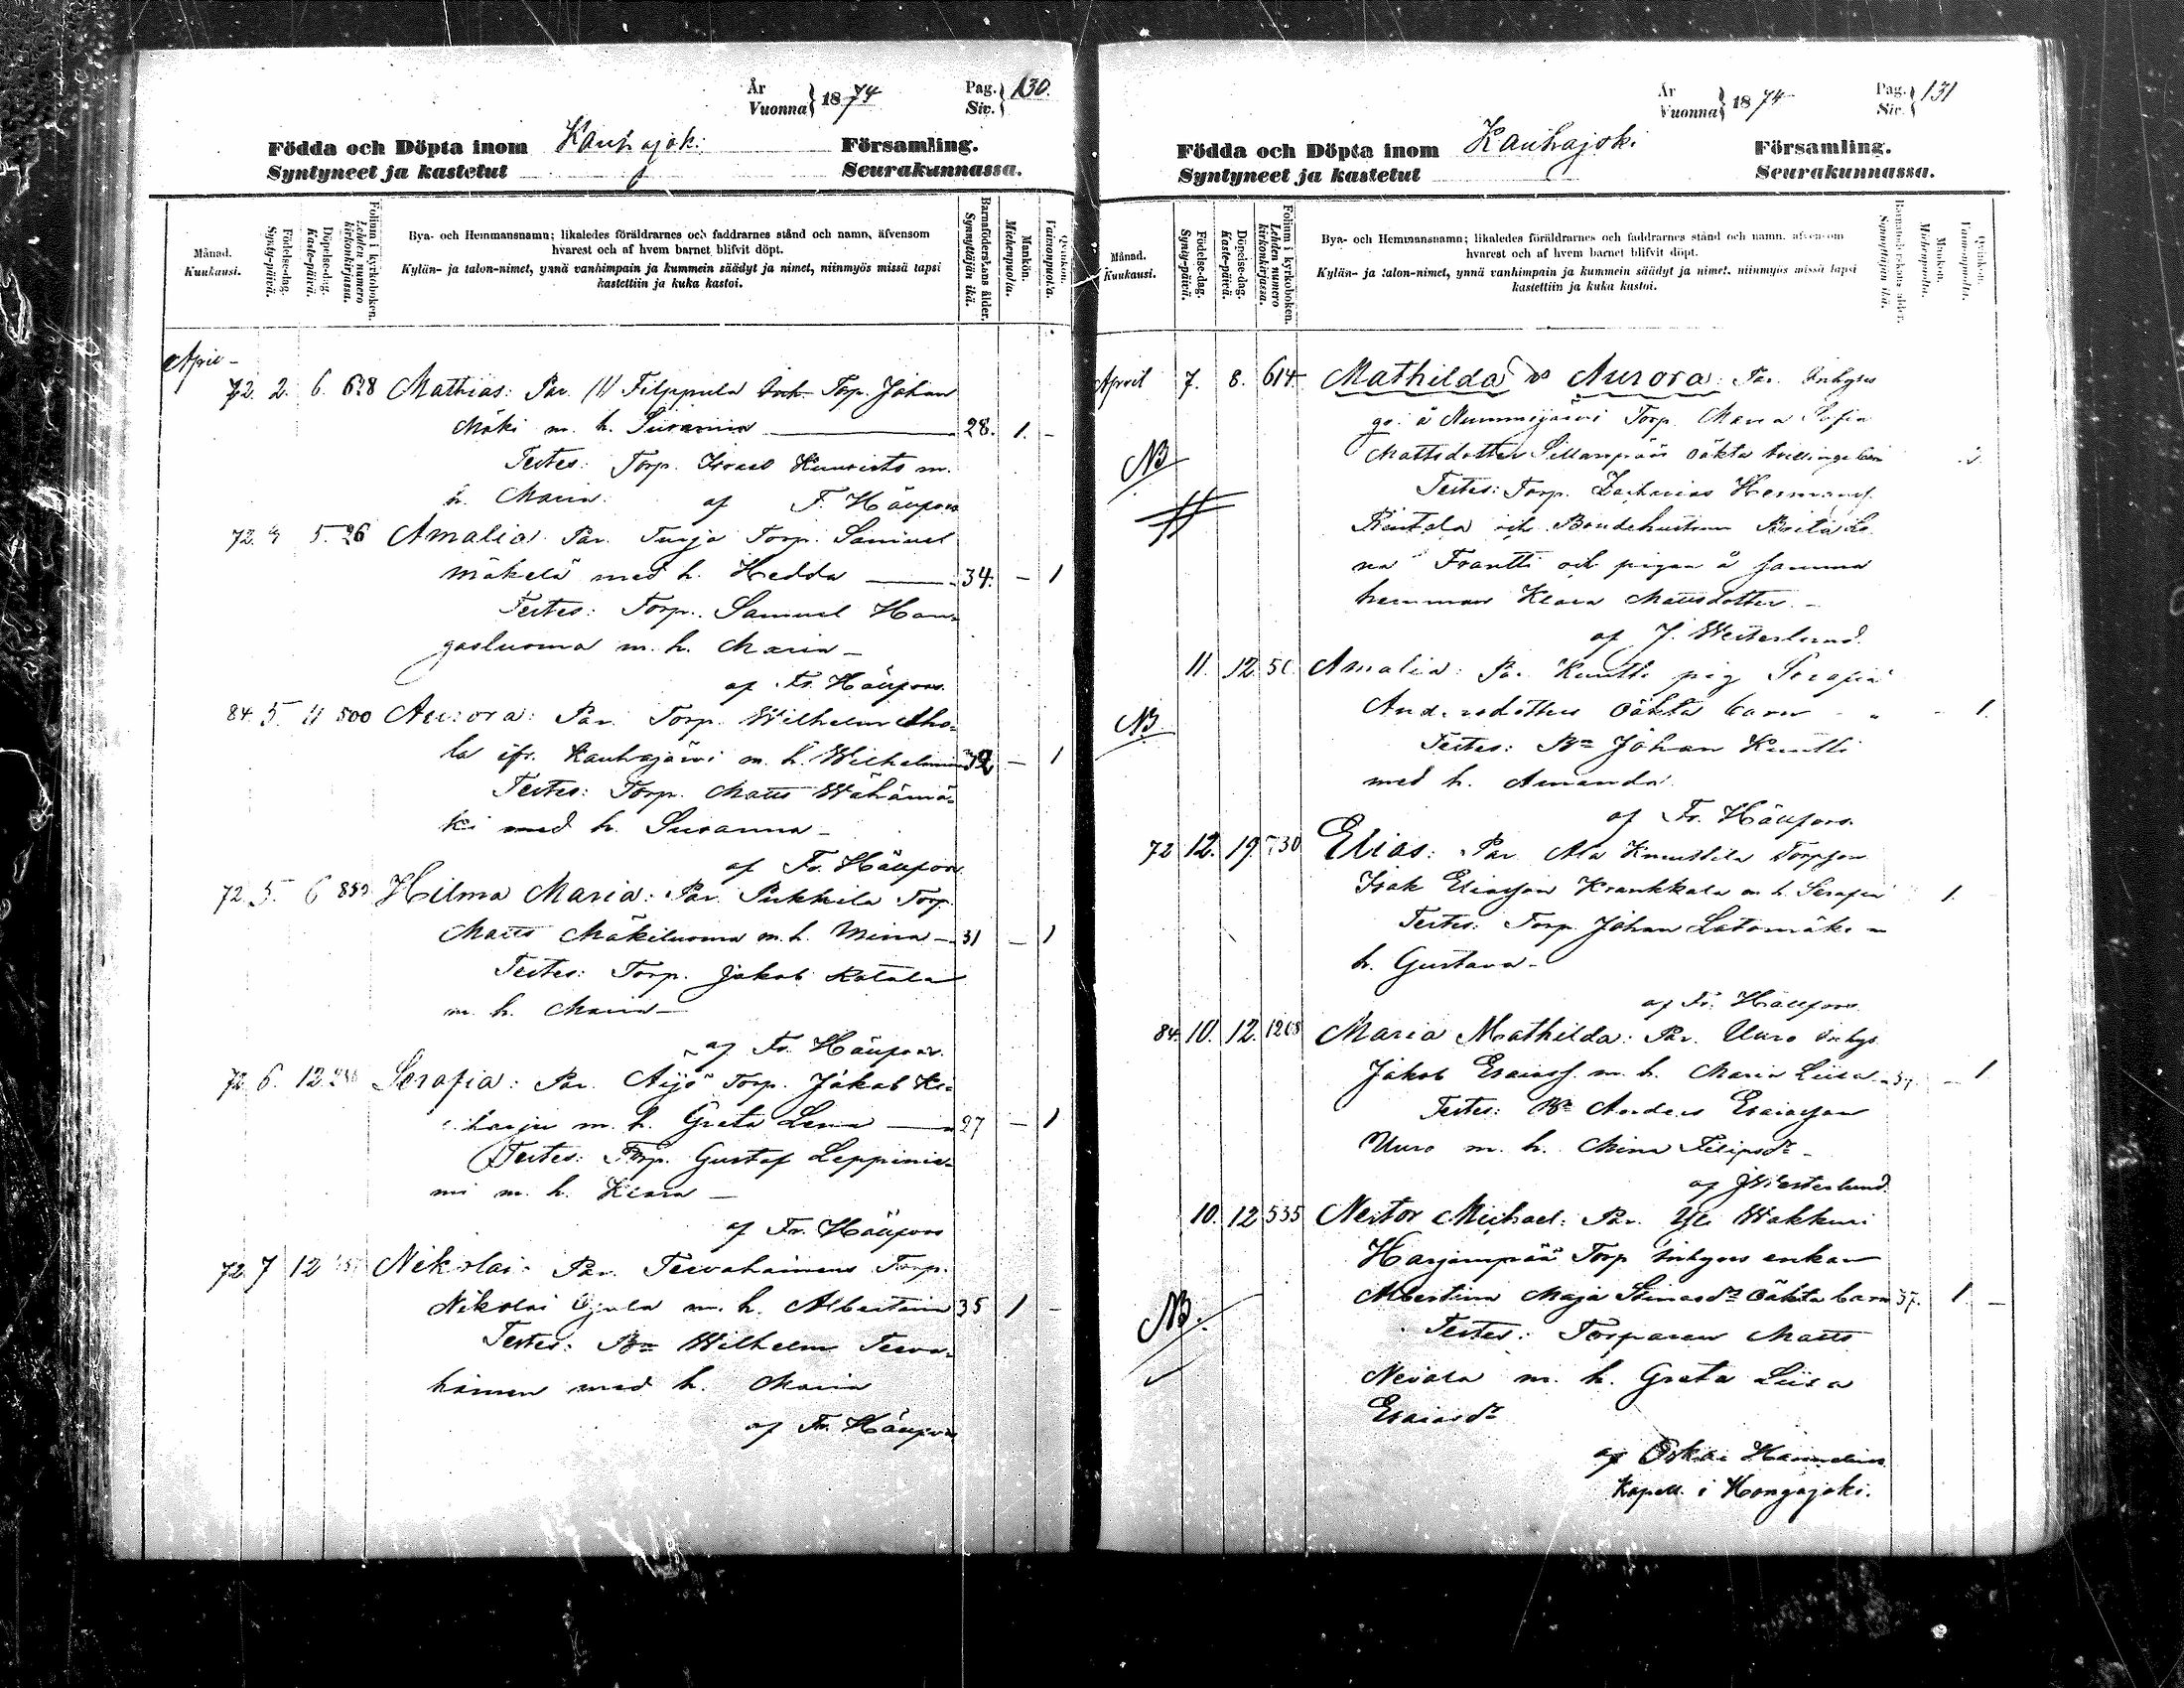 År
Vuonna } 1874
Pag.
Siv. } 130.
Födda och Döpta inom Kauhajoki Församling.
Syntyneet ja kastetut Seurakunnassa.
Månad.
Kuukausi.
Födelse-dag.
Synty-päivä.
Döpelse-dag.
Kaste-päivä.
Folium i kyrkoboken.
Lehden numero kirkonkirjassa.
Bya- och Hemmansnamn; likaledes föräldrarnes och faddrarnes stånd och namn, äfvensom
hvarest och af hvem barnet blifvit döpt.
Kylän- ja talon-nimet, ynnä vanhimpain ja kummein säädyt ja nimet, niinmyös missä tapsi
kastettiin ja kuka kastoi.
Barnaföderskans ålder.
Synnyttäjän ikä.
Mankön.
Miehenpuolia.
Qvinkön.
Vaimonpuolia.
April
72. 2. 6. 628 Mathias: Par. Filppula Torp. Johan
Mäki m. h. Susanna 28. 1. -
Testes: Torp. Israel m.
h. Maria. af F. Häufors
72. 4 5. 26 Amalia Par. Turja Torp. Samuel
Mäkelä med h. Hedda 34. - 1
Testes: Torp. Samuel Han-
gasluoma m. h. Maria -
af Fr. Häufors.
84. 5. 11 500 Aurora: Par. Torp. Wilhelm Aho-
la ifr. Kauhajärvi m. h. Wilhelmina 32 - 1
Testes: Torp. Matts Wähämä-
ki med h. Susanna -
af Fr. Häufors
72. 5. 6 Hilma Maria: Par. Pukkila Torp.
Matts Mäkiluoma m. h. Mina - 31 - 1
Testes: Torp. Jakob Katala
m. h. Maria -
af Fr. Häufors.
72. 6. 12. Serafia: Par. Äijö Torp. Jakob Ki-
harju m. h. Greta Lena 27 - 1
Testes: Torp. Gustaf Leppinie-
mi m. h. Klara -
af Fr. Häufors
72. 7 12 Nikolai: Par. Teivahainens Torp.
Nikolai Ojala m. h. Albertina 35 1 -
Testes: Bn Wilhelm Teiva-
hainen med h. Maria
af Fr. Häufors
År
Vuonna } 1874
Pag.
Siv. } 131
Födda och Döpta inom Kauhajoki Församling.
Syntyneet ja kastetut Seurakunnassa.
Månad.
Kuukausi.
Födelse-dag.
Synty-päivä.
Döpelse-dag.
Kaste-päivä.
Folium i kyrkoboken.
Lehden numero kirkonkirjassa.
Bya- och Hemmansnamn; likaledes föräldrarnes och faddrarnes stånd och namn, äfvensom
hvarest och af hvem barnet blifvit döpt.
Kylän- ja talon-nimet, ynnä vanhimpain ja kummein säädyt ja nimet, niinmyös missä tapsi
kastettiin ja kuka kastoi.
Barnaföderskans ålder.
Synnyttäjän ikä.
Mankön.
Miehenpuolia.
Qvinkön.
Vaimonpuolia.
April 7. 8. 614 Mathilda o Aurora: Par. Inhyses
å Nummijärvi Torp. Maria Sofia
NB Mattsdotter Sillanpää oäkta tvillingebarn 2.
Testes: Torp. Zacharias Hermansf.
Rintala och Bondehustrun Brita Le-
na Frantti och pigan å samma
hemman Klara Mattsdotter. -
af J. Westerlund.
11. 12. Amalia: Par Kuntti pig Serafia
NB Andersdotters oäkta barn - 1.
Testes: Bn Johan Kuntti
med h. Amanda.
af Fr. Häufors.
72 12. 19. 730 Elias: Par Ala Knuuttila Torpson
Isak Eliasson Krankkala m. h. Serafia 1.
Testes: Torp. Johan Latomäki m
h. Gustava -
af Fr. Häufors
84. 10. 12. 1208 Maria Mathilda: Par. Uuro Inhys
Jakob Esaiass. m. h. Maria Liisa - 1
Testes: Bn Anders Esaiasson
Uuro m. h. Mina Filipsdr -
af J Westerlund.
10. 12 535 Nestor Michael: Par. Yli Wakkuri
Harjanpää Torp Inhyses enkan
NB. Albertina Maja Stinasdr oäkta barn 37. 1. -
Testes: Torparen Matts
Nevala m. h. Greta Liisa
Esaiasdr
af Oskar
Kapell. i Kongajoki.